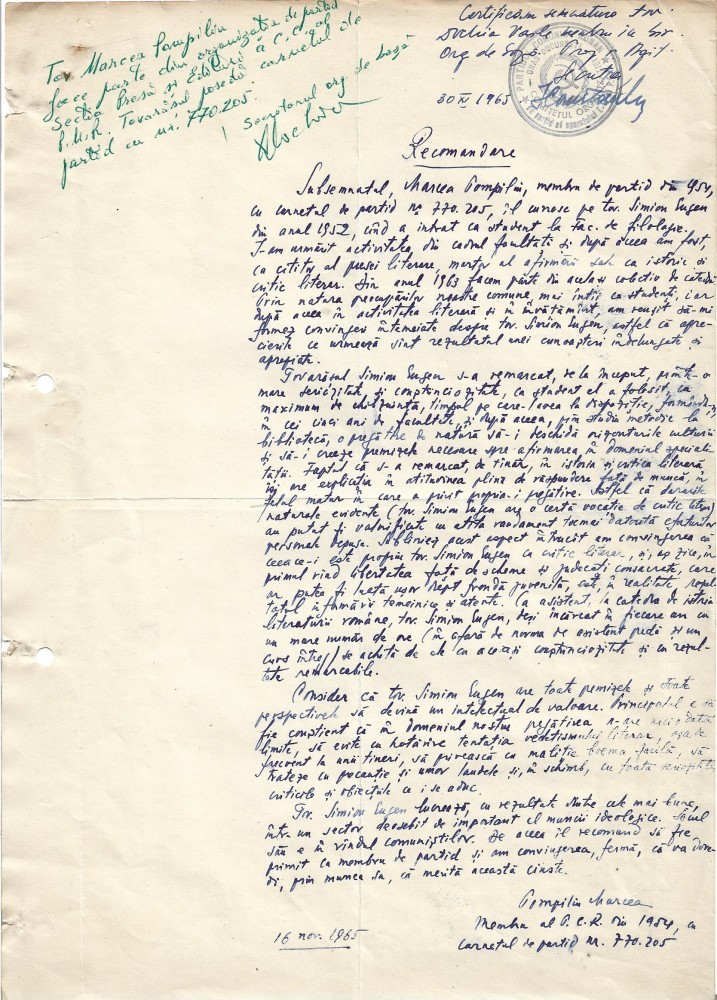 Tov. Marcea Pompiliu
face parte din organizația de partid
Secția Presă și Edituri a C.C. al
P.M.R. Tovarășul posedă carnetul de
partid cu nr. 770.205.
Secretarul org. de bază
Certificăm semnătura tov.
membru în
Org. de bază Prop. și Agit.
30 XI 1965
Recomandare
Subsemnatul, Marcea Pompiliu, membru de partid din 1954,
cu carnetul de partid nr. 770.205, îl cunosc pe tov. Simion Eugen
din anul 1952, cînd a intrat ca student la fac. de filologie.
I-am urmărit activitatea din cadrul facultății și după aceea am fost,
ca cititor al presei literare, martor al afirmării sale ca istoric și
critic literar. Din anul 1963 facem parte din același colectiv de catedră.
Prin natura preocupărilor noastre comune, mai întîi ca studenți, iar
după aceea în activitatea literară și în învățămînt, am reușit să-mi
formez convingeri întemeiate despre tov. Simion Eugen, astfel că apre-
cierile ce urmează sînt rezultatul unei cunoașteri îndelungate și
apropiate.
Tovarășul Simion Eugen s-a remarcat, de la început, printr-o
mare seriozitate și conștiinciozitate, ca student el a folosit, cu
maximum de chibzuință, timpul pe care-l avea la dispoziție, formîndu-și
în cei cinci ani de facultate, și după aceea, prin studiu metodic la
bibliotecă, o pregătire de natură să-i deschidă orizonturile culturii
și să-i creeze premizele necesare spre afirmarea în domeniul speciali-
tății. Faptul că s-a remarcat, de tînăr, în istoria și critica literară,
își are explicația în atitudinea plină de răspundere față de muncă, în
felul matur în care a privit propria-i pregătire. Astfel că darurile
naturale evidente (tov. Simion Eugen are o certă vocație de critic literar)
au putut fi valorificate cu atîta randament tocmai datorită eforturilor
personale depuse. Subliniez acest aspect întrucît am convingerea că
ceea ce-i este propriu tov. Simion Eugen ca critic literar, și, aș zice, în
primul rînd libertatea față de scheme și judecăți consacrate, care
ar putea fi luată ușor drept frondă juvenilă, este, în realitate, rezul-
tatul informării temeinice și atente. Ca asistent, la catedra de istoria
literaturii române, tov. Simion Eugen, deși încărcat în fiecare an cu
un mare număr de ore (în afară de norma de asistent predă și un
curs întreg) se achită de ele cu aceeași conștiinciozitate și cu rezul-
tate remarcabile.
Consider că tov. Simion Eugen are toate premizele și toate
perspectivele să devină un intelectual de valoare. Principalul e să
fie conștient că în domeniul nostru pregătirea n-are niciodată
limite, să evite cu hotărîre tentația vedetismului literar, așa de
frecvent la unii tineri, să privească cu maliție boema facilă, să
trateze cu precauție și umor laudele și, în schimb, cu toată seriozitatea
criticile și obiecțiile ce i se aduc.
Tov. Simion Eugen lucrează, cu rezultate dintre cele mai bune,
într-un sector deosebit de important al muncii ideologice. Locul
său e în rîndul comuniștilor. De aceea îl recomand să fie
primit ca membru de partid și am convingerea, fermă, că va dove-
di, prin munca sa, că merită această cinste.
Pompiliu Marcea
Membru al P.C.R. din 1954, cu
carnetul de partid nr. 770.205
16 nov. 1965